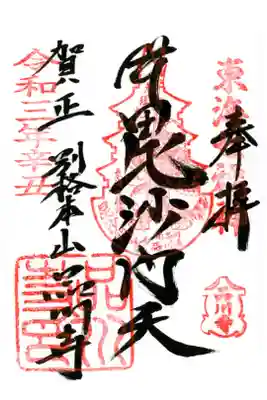 奉拝
毘沙門天
賀正
別格本山 品川寺
令和三年辛丑